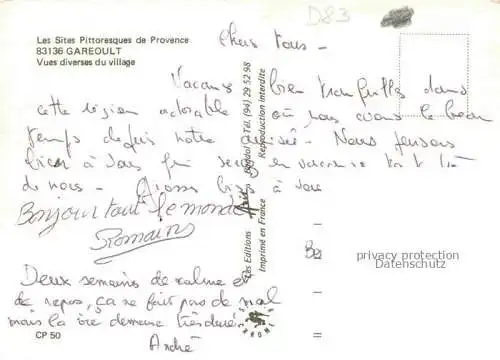 Les Sites Pittoresques de Provence
83136 GAREOULT
Vues diverses du village
D83
Chers tous -
Vacances bien tranquilles dans
cette région adorable où nous avons le beau
temps depuis notre arrivée - Nous pensons
bien à vous qui en vacances
de nous - Gros à vous
Bonjour tout le monde
Romain
Deux semaines de calme et
de repos, ça ne fait pas de mal
mais la 1ère demeure très dure
André
CP 50
Les Editions
Bandol - Tél. (94) 29 52 98
Imprimé en France
Reproduction interdite
privacy protection
Datenschutz